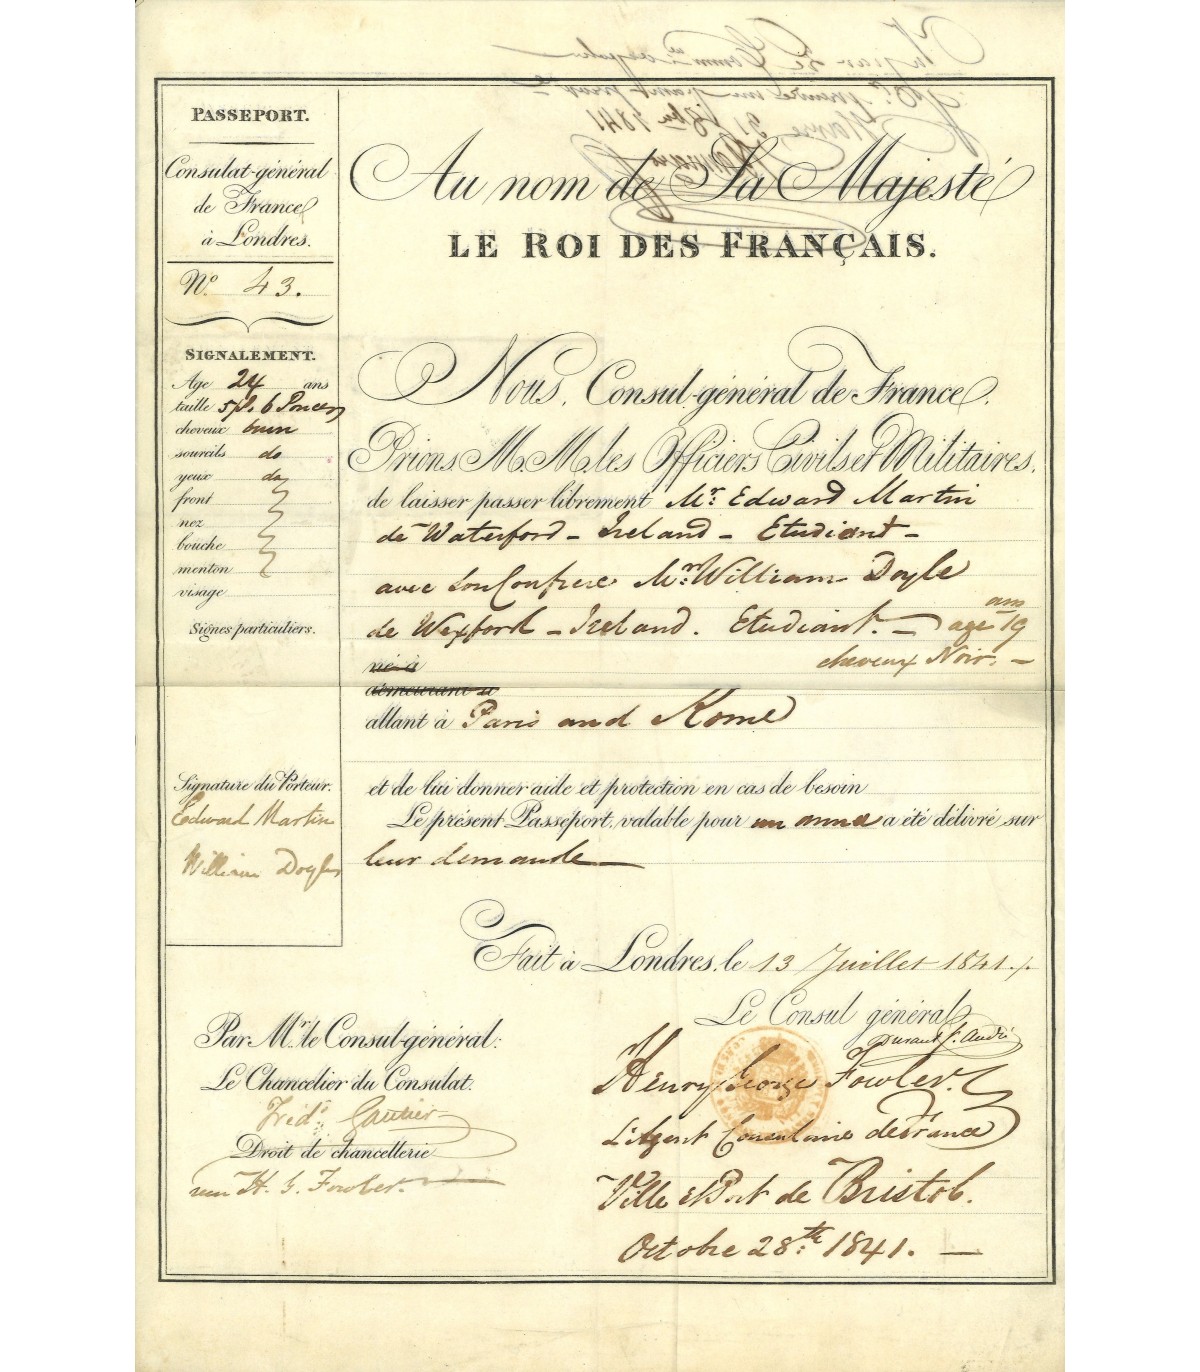 PASSEPORT.
Consulat-général
de France
à Londres.
N.o 43.
SIGNALEMENT.
Age 24 ans
taille 5 pi. 6 Pouces
cheveux brun
sourcils do
yeux do
front
nez
bouche
menton
visage
Signes particuliers.
Signature du Porteur.
Edward Martin
William Doyle
Au nom de Sa Majesté
LE ROI DES FRANÇAIS.
Nous, Consul-général de France,
Prions M.M. les Officiers Civils et Militaires,
de laisser passer librement Mr: Edward Martin
de Waterford – Ireland – Etudiant –
avec son Confrere Mr William Doyle
de Wexford – Ireland. Etudiant. – age 19 ans
né à cheveux Noir. –
demeurant à
allant à Paris and Rome
et de lui donner aide et protection en cas de besoin
Le présent Passeport, valable pour un anneé a été délivré sur
leur demande –
Fait à Londres, le 13 Juillet 1841.
Le Consul général
Durant St. André
Par Mr. le Consul-général:
Le Chancelier du Consulat.
Fréd:
Droit de chancellerie
H. G. Fowler.
Henry George Fowler.
L'Agent Consulaire de France
Ville et Port de Bristol.
Octobre 28:th 1841. –